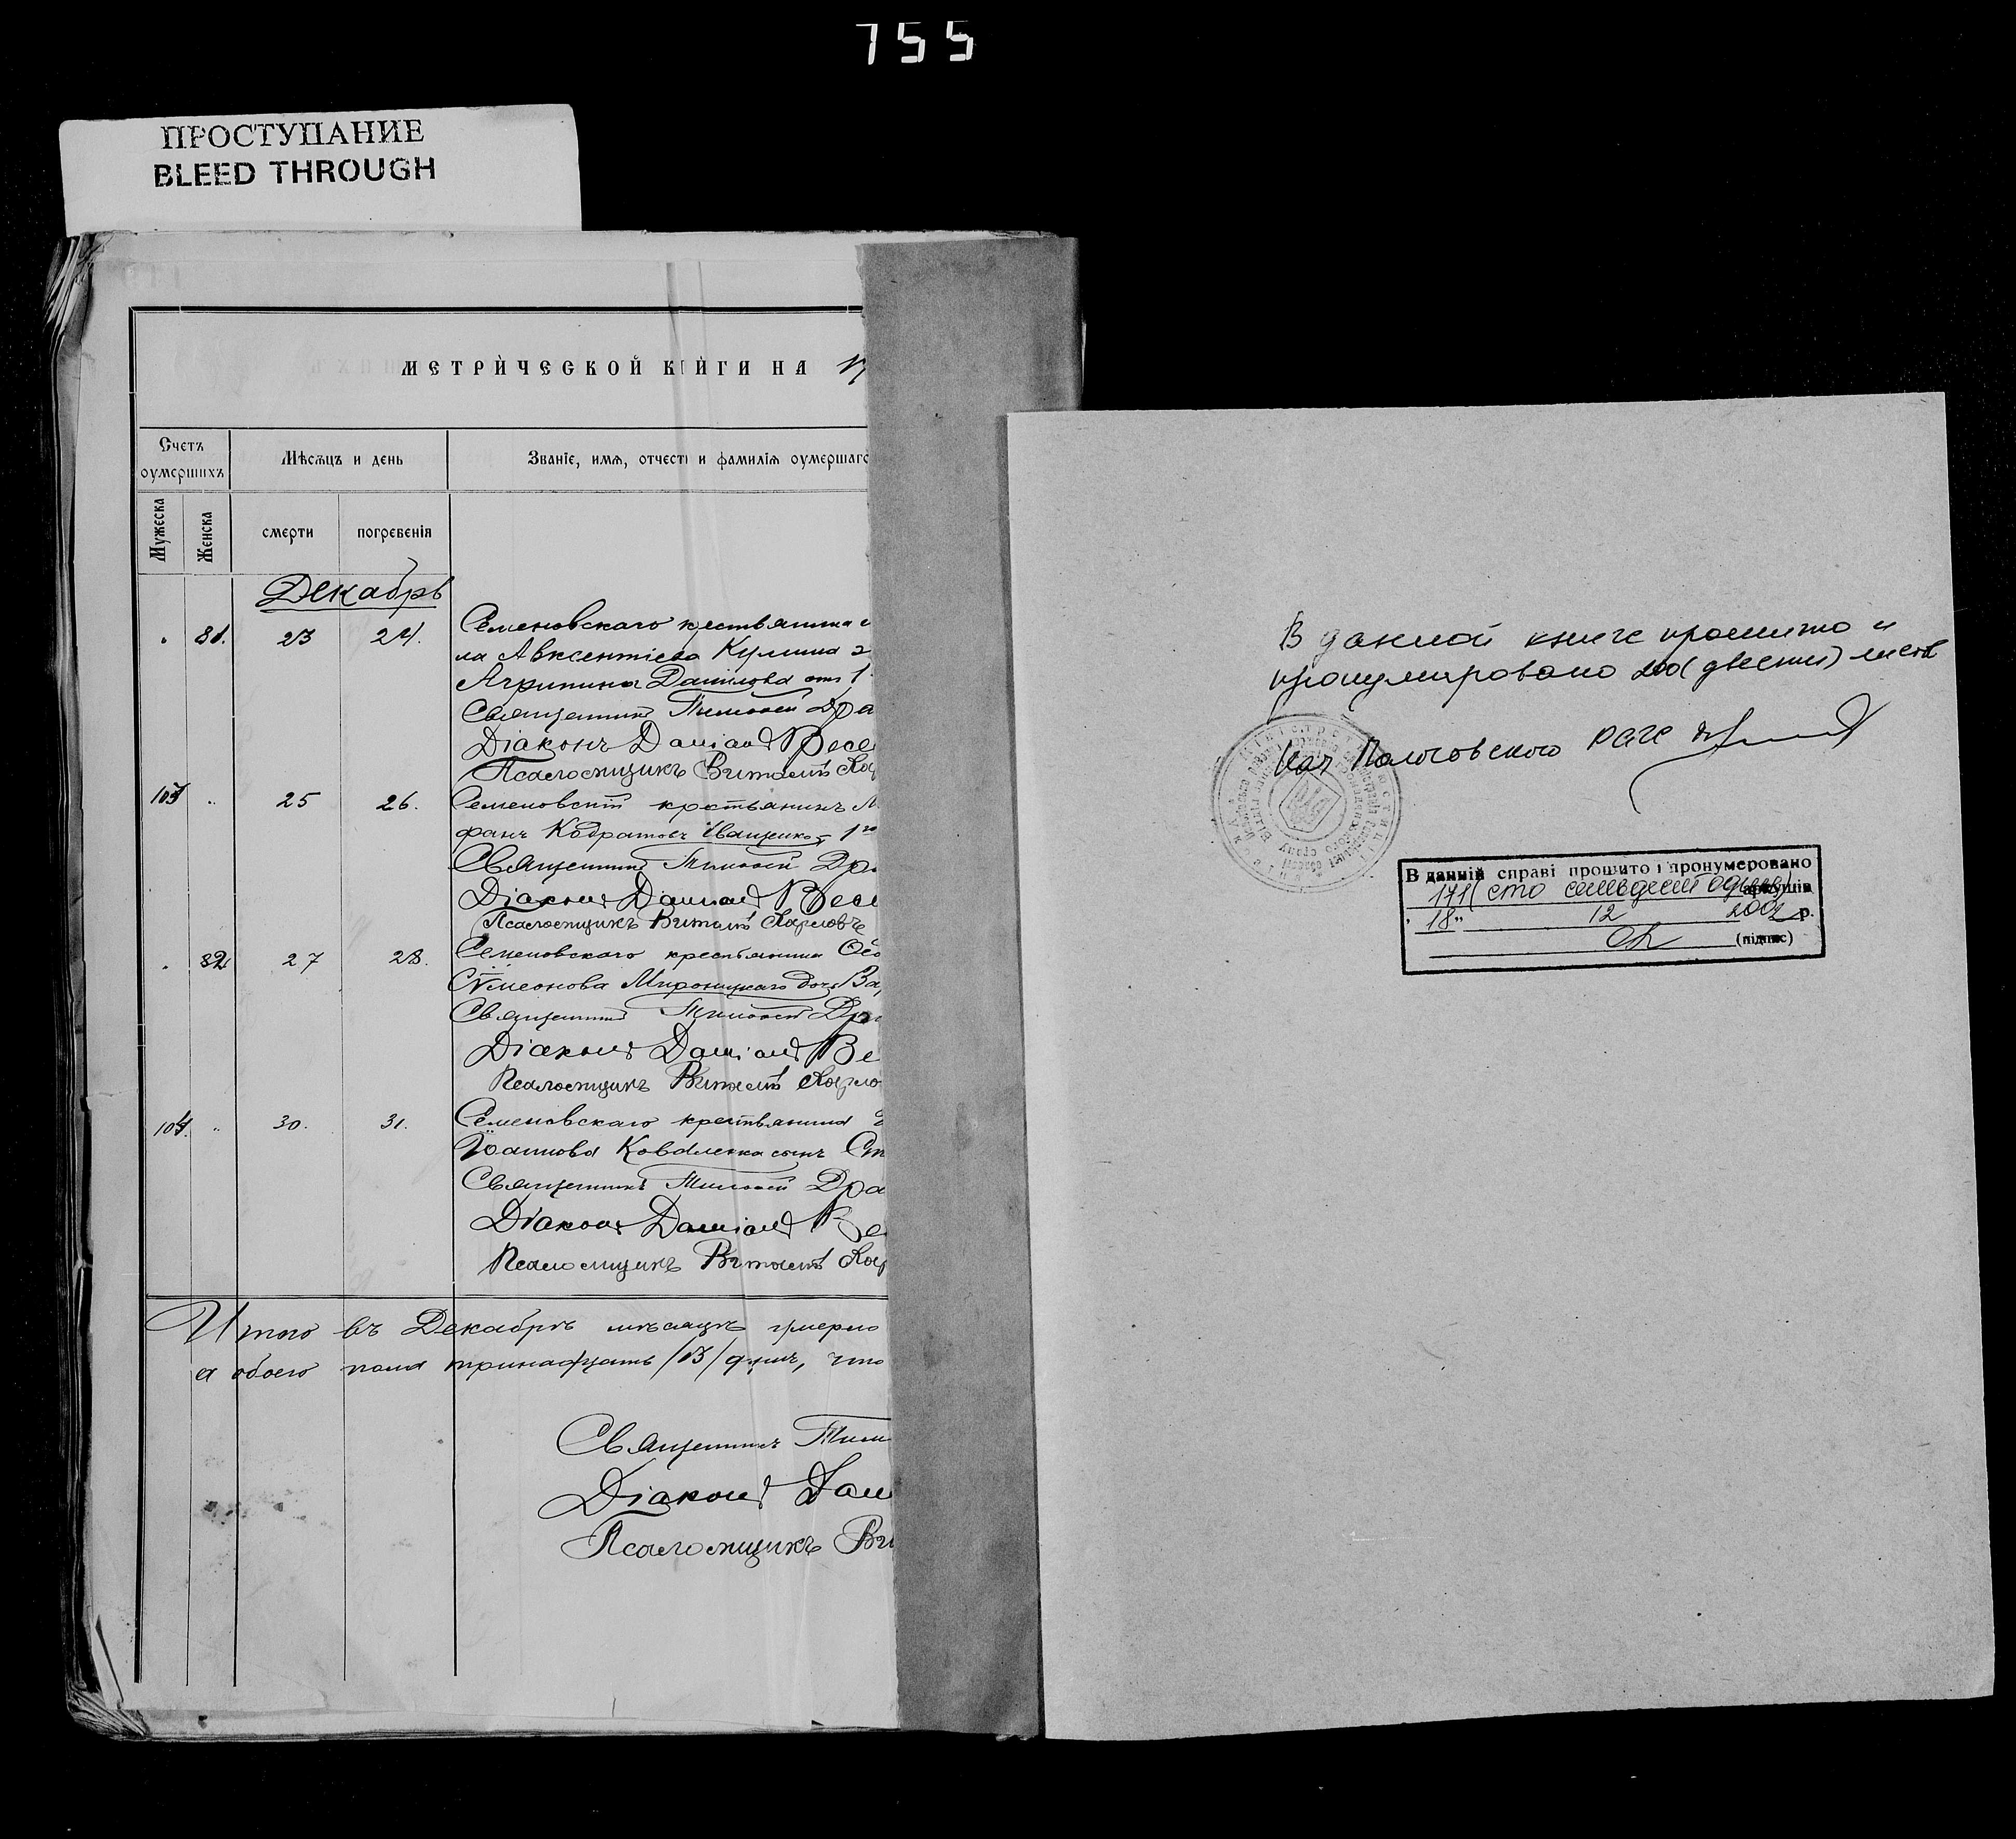 755
ПРОСТУПАНИЕ
BLEED THROUGH
МЕТРИЧЕСКОЙ КНИГИ НА
Счетъ оумершихъ
Мѣсяцъ и день
Званіе, имя, отчест и фамилія оумершаго
Мужеска
Женска
смерти
погребенія
Декабрь
81. 23 24. Семеновскаго крестьянина
ла Авксентіева Кулиша
Агрипина Данилова
Священникъ Тимоѳей Дра
Діаконъ Даміанъ Весе
Псаломщикъ Виталій Кар
103 25 26. Семеновскій крестьянинъ
фанъ Кодратовъ Иващенко
Священникъ Тимоѳей Дра
Діаконъ Даміанъ Весе
Псаломщикъ Виталій Карловъ
82 27 28. Семеновскаго крестьянина
Сѵмеонова Мироницкаго дочь Ва
Священникъ Тимоѳей Дра
Діаконъ Даміанъ Ве
Псаломщикъ Виталій Карло
104. 30. 31. Семеновскаго крестьянина
Іоаннова Коваленка сынъ
Священникъ Тимоѳей Дра
Діаконъ Даміанъ Ве
Псаломщикъ Виталій Кар
Итого въ Декабрѣ мѣсяцѣ умерло
а обоего пола тринадцать /13/ душъ, что
Священникъ Тим
Діаконъ Дам
Псаломщикъ Ви
В данной книге прошито и
пронумеровано 200 (двести) листов
Нач Пологовского РАГС
В данній справі прошито і пронумеровано
171 (сто сімдесят один) аркушів
"18" 12 2002 р.
(підпис)